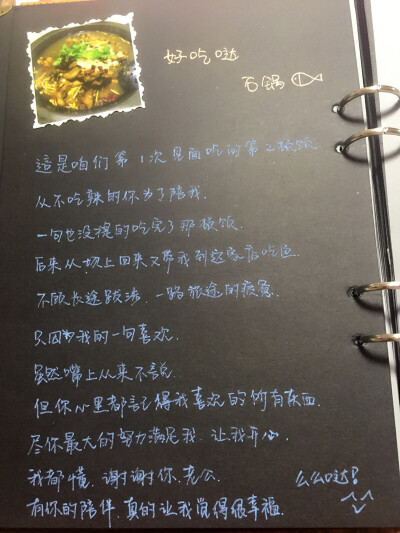 好吃哒
石锅
這是咱们第1次见面吃的第2顿饭
从不吃辣的你为了陪我.
一句也没提的吃完了那顿饭.
后来从坝上回来又带我到这家店吃鱼
不顾长途跋涉.一路旅途的疲惫.
只因为我的一句喜欢.
虽然嘴上从来不說.
但你心里都記得我喜欢的所有东西.
尽你最大的努力满足我.让我开心.
我都懂.谢谢你.老公.
么么哒!
有你的陪伴.真的让我觉得很幸福.